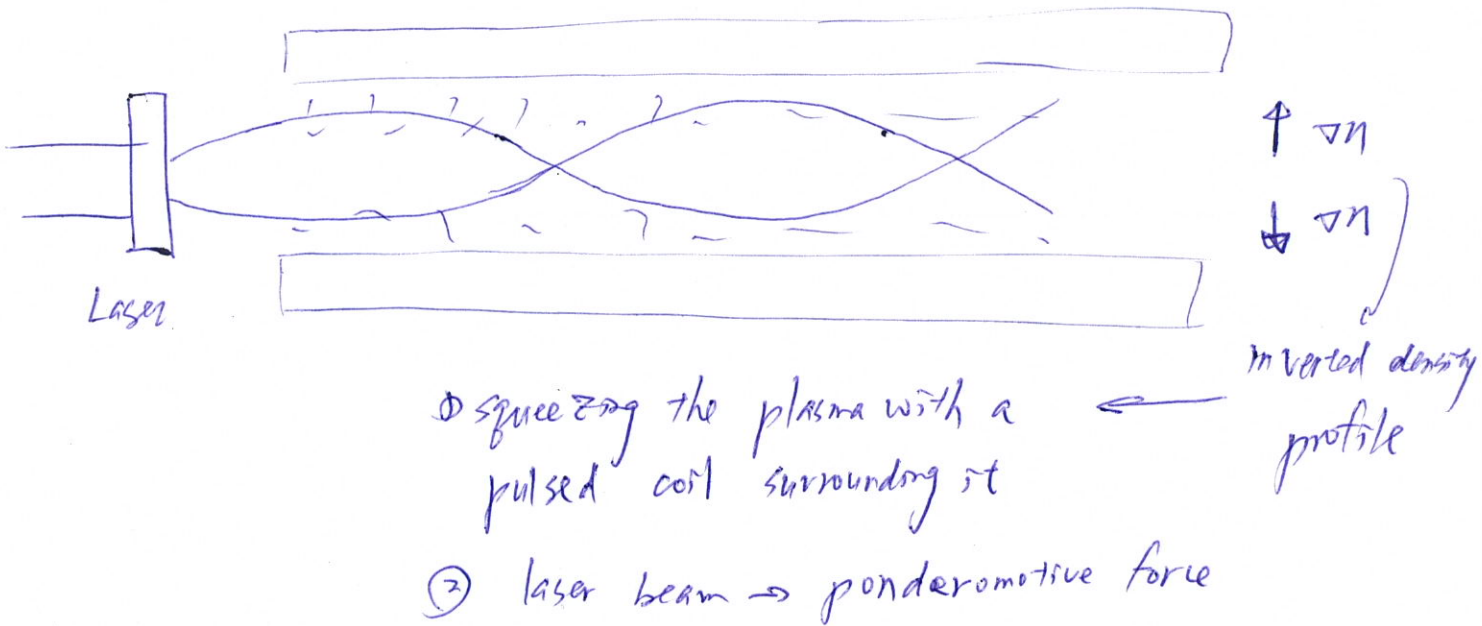 ↑ ∇n
↓ ∇n
Laser
inverted density
profile
① squeezing the plasma with a
pulsed coil surrounding it
② laser beam → ponderomotive force